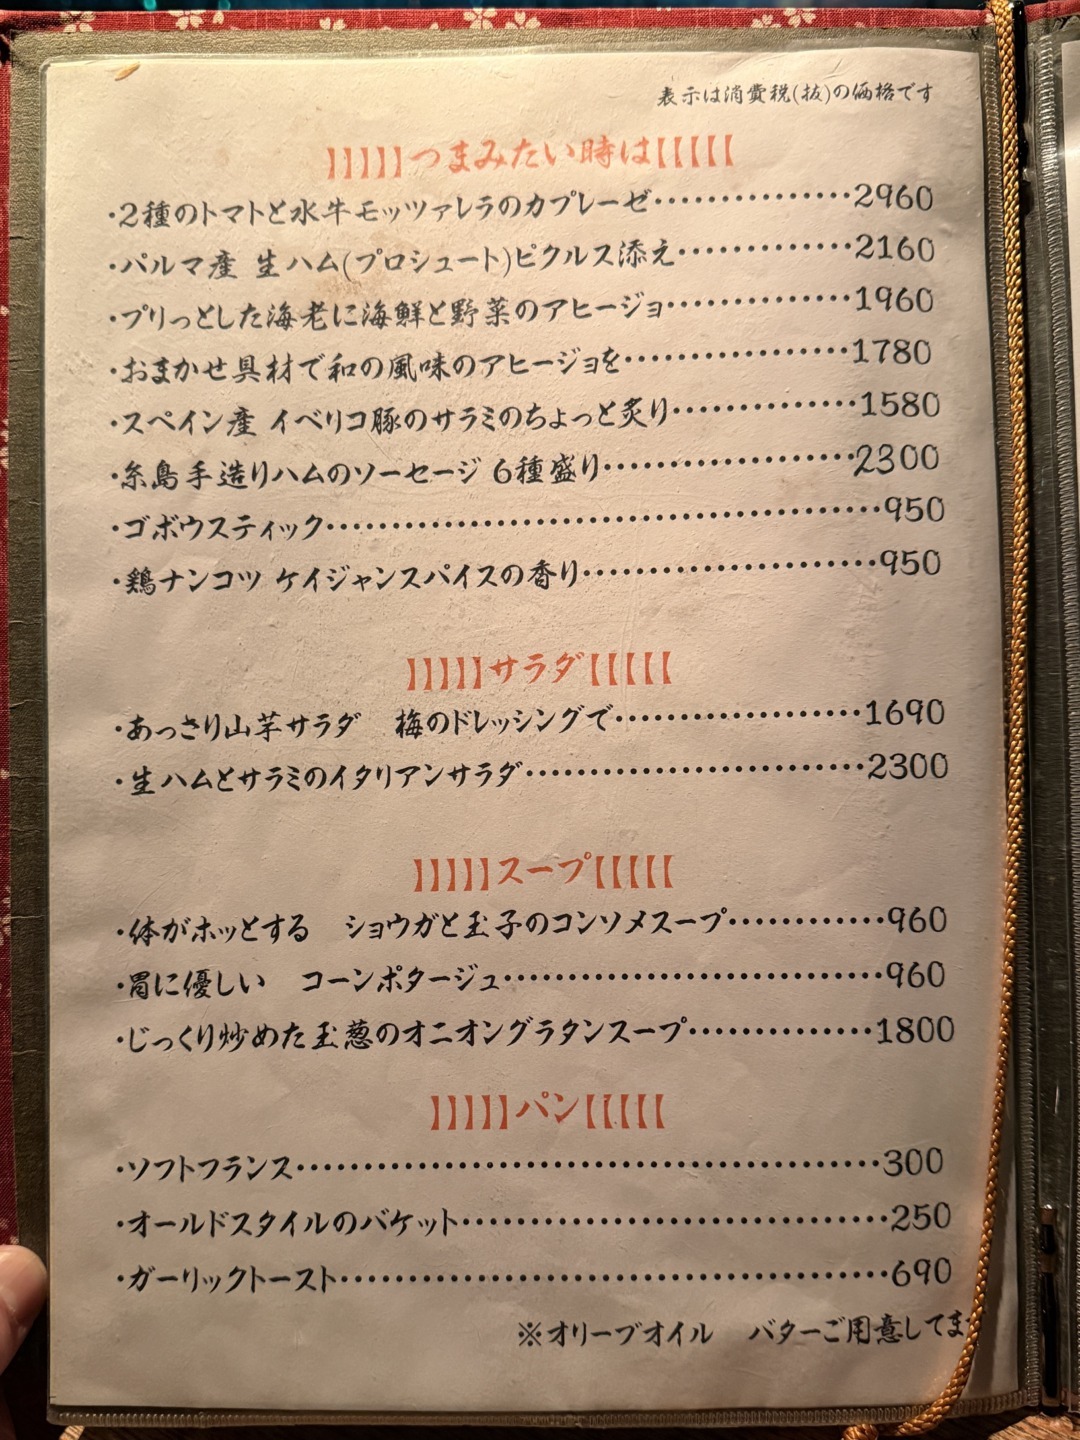 表示は消費税(抜)の価格です
】】】】】つまみたい時は【【【【【
・2種のトマトと水牛モッツァレラのカプレーゼ……………2960
・パルマ産 生ハム(プロシュート)ピクルス添え……………2160
・プリっとした海老に海鮮と野菜のアヒージョ……………1960
・おまかせ具材で和の風味のアヒージョを………………1780
・スペイン産 イベリコ豚のサラミのちょっと炙り……………1580
・糸島手造りハムのソーセージ 6種盛り…………………2300
・ゴボウスティック……………………………………950
・鶏ナンコツ ケイジャンスパイスの香り……………………950
】】】】】サラダ【【【【【
・あっさり山芋サラダ　梅のドレッシングで…………………1690
・生ハムとサラミのイタリアンサラダ………………………2300
】】】】】スープ【【【【【
・体がホッとする　ショウガと玉子のコンソメスープ…………960
・胃に優しい　コーンポタージュ…………………………960
・じっくり炒めた玉葱のオニオングラタンスープ……………1800
】】】】】パン【【【【【
・ソフトフランス………………………………………300
・オールドスタイルのバケット……………………………250
・ガーリックトースト……………………………………690
※オリーブオイル　バターご用意してま